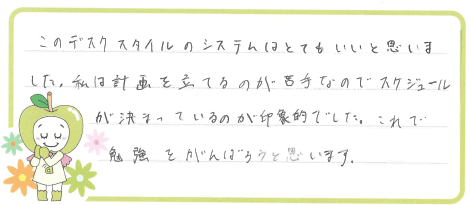 このデスクスタイルのシステムはとてもいいと思いま
した。私は計画を立てるのが苦手なのでスケジュール
が決まっているのが印象的でした。これで
勉強をがんばろうと思います。